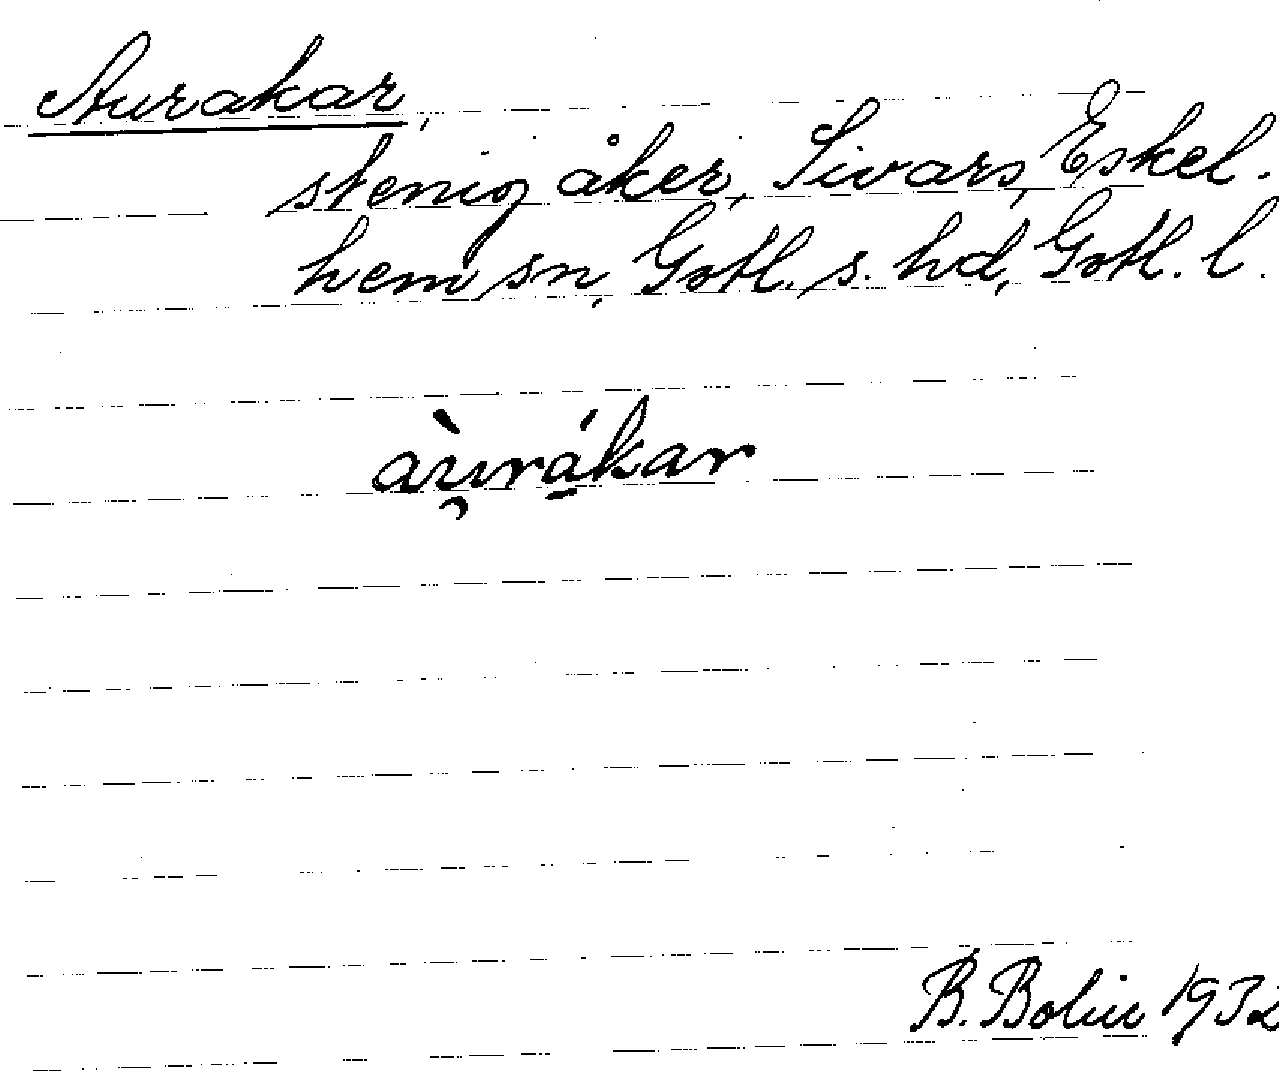 Aurakar,
stenig åker, Sivars, Eskel-
hem sn, Gotl. s. hd, Gotl. l.
àu̯rá̱kar
B. Bolin 1932